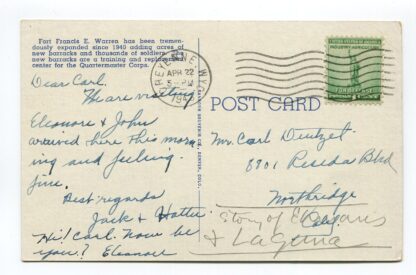 Fort Francis E. Warren has been tremen-
dously expanded since 1940 adding acres of
new barracks and thousands of soldiers. The
new barracks are a training and replacement
center for the Quartermaster Corps.
Dear Carl.
We are visiting
Eleonore & John
arrived here this morn
ing and feeling
fine.
Best regards
Jack & Hattie
Hi! Carl. How be
you? Eleanore
CHEYENNE, WYO.
APR 22
5 - PM
UNITED STATES OF AMERICA
INDUSTRY AGRICULTURE
FOR DEFENSE
POST CARD
Mr. Carl Dentzel
8901 Reseda Blvd
Northridge
Calif.
Story of
& Laguna